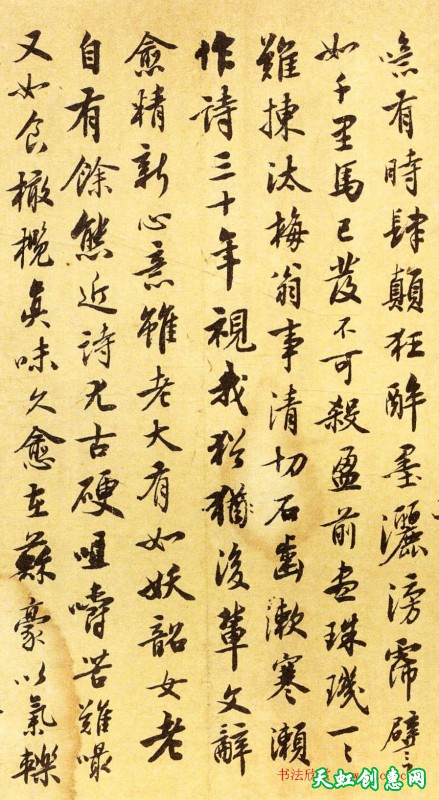 噫有時肆顛狂醉墨灑滂霈譬
如千里馬已發不可殺盈前盡珠璣一一
難揀汰梅翁事清切石齒漱寒瀨
作詩三十年視我猶後輩文辭
愈精新心意雖老大有如妖韶女老
自有餘態近詩尤古硬咀嚼苦難嘬
又如食橄欖眞味久愈在蘇豪以氣轢
书法欣
天虹创意网